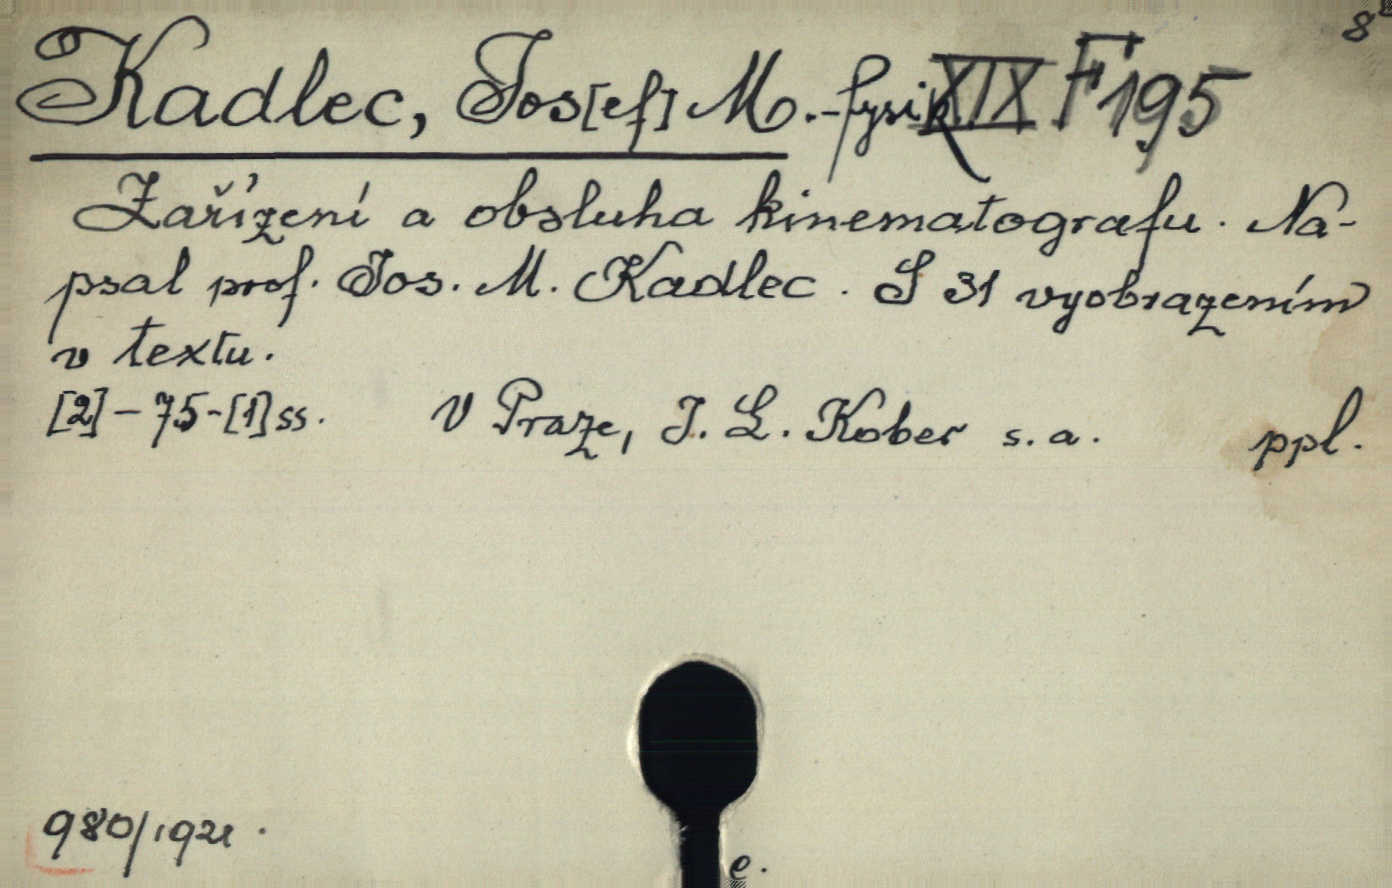 8°
Kadlec, Jos[ef] M. - fysik XIX F 195
Zařízení a obsluha kinematografu. Na-
psal prof. Jos. M. Kadlec. S 31 vyobrazením
v textu.
[2] - 75 - [1] ss. V Praze, J. L. Kober s. a. ppl.
980/1921.
e.